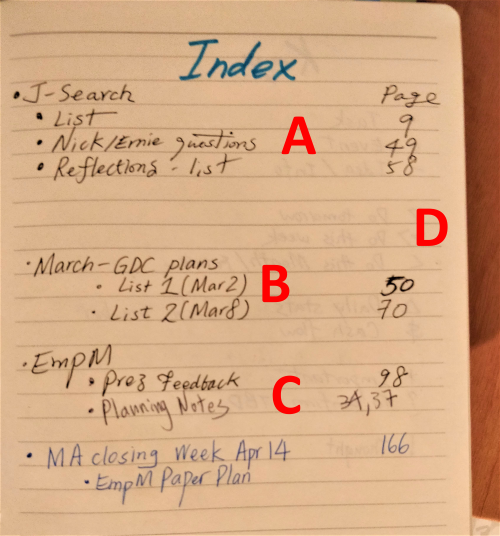 Index
• J-Search Page
• List 9
• Nick/Ernie questions 49
• Reflections - list 58
A
D
• March-GDC plans
• List 1 (Mar2) 50
• List 2 (Mar8) 70
B
• EmpM
• Prez Feedback 98
• Planning Notes 34,37
C
• MA closing Week Apr 14 166
• EmpM Paper Plan